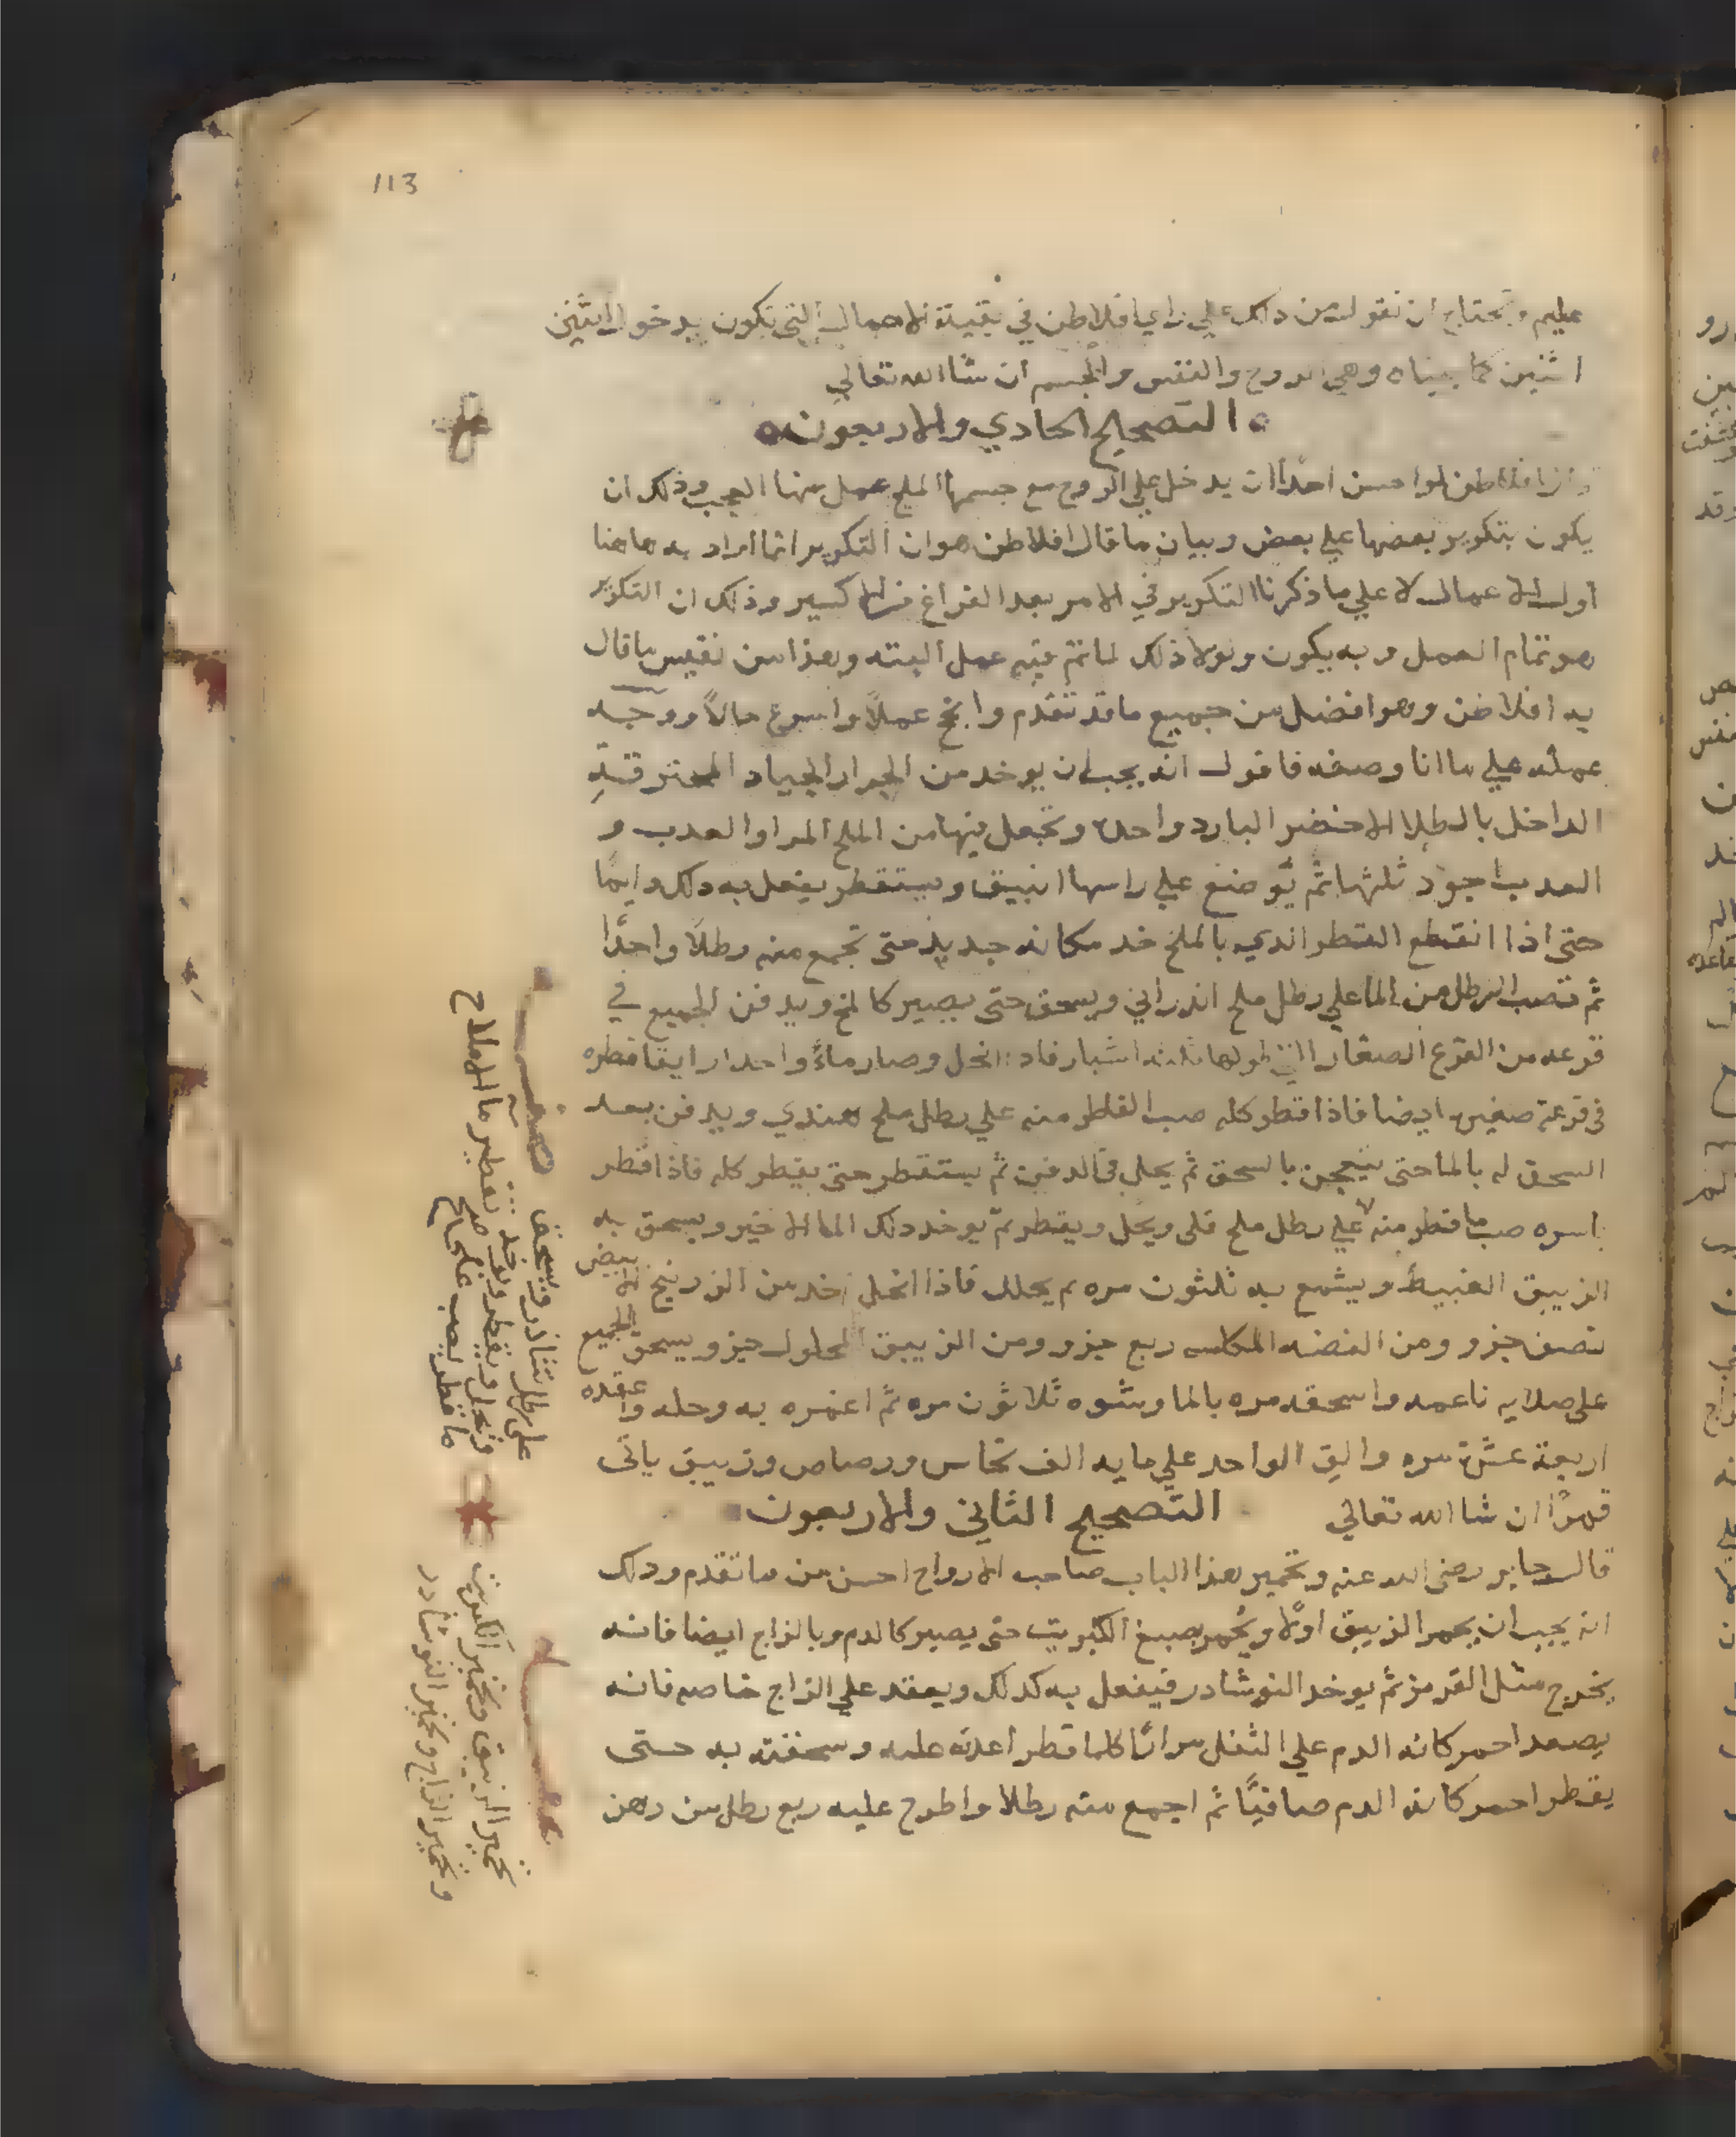 113
عليم ونحتاج ان نقول من ذلك علي راي افلاطن في بقية الاعمال التي تكون بدخول اثنين
اثنين كما بيناه وهي الروح والنفس والجسم ان شا الله تعالي
التصحيح الحادي والاربعون
افلاطن لو احسن احدًا ان يدخل علي الروح مع جسمها الملح عمل منها العجب وذلك ان
يكون بتكرير بعضها علي بعض وبيان ما قال افلاطن هو ان التكرير انما اراد به هاهنا
اول الاعمال لا علي ما ذكرنا التكرير في الامر بعد الفراغ من الاكسير وذلك ان التكرير
هو تمام العمل وبه يكون ولولا ذلك لما تم فيه عمل البته وهذا من نفيس ما قال
به افلاطن وهو افضل من جميع ما قد تقدم وانجح عملاً واسرع حالاً ووجه
عمله علي ما انا وصفه فاقول انه يجب ان يوخد من الجرار الجياد المحترقة
الداخل بالطلا الاخضر البارد واحده وتجعل فيها من الملح المر او العدب و
العدب اجود ثلثها ثم يُوضع علي راسها انبيق ويستقطر يفعل به دلك دايمًا
حتى اذا انقطع القطر الذي بالملح خد مكانه جديد حتى تجمع منه رطلاً واحدًا
ثم تصب الرطل من الما علي رطل ملح اندراني ويسحق حتى يصير كالمخ ويدفن الجميع في
قرعه من القرع الصغار التي طولها ثلثة اشبار فاد انحل وصار ماءً واحدا رايقا قطره
في قرعة صغيره ايضا فاذا قطر كله صب القاطر منه علي رطل ملح هندي ويدفن بعد
السحق له بالما حتى ينعجن بالسحق ثم يحلل في الدفن ثم يستقطر حتى يقطر كله فاذا قطر
باسره صب ما قطر منه علي رطل ملح قلي ويحل ويقطر ثم يوخد دلك الما الاخير ويسحق به
الزيبق الغبيط ويشمع به ثلثون مره ثم يحلل فاذا انحل خد من الزرنيخ الابيض
نصف جزو ومن الفضه المكلسه ربع جزو ومن الزيبق المحلول جزو ويسحق الجميع
على صلايه ناعمه واسحقه مره بالما وشوه ثلاثون مره ثم اغمره به وحله واعقده
اربعة عشرة مره والق الواحد علي مايه الف نحاس ورصاص وزيبق ياتى
قمرًا ان شا الله تعالي
التصحيح الثاني والاربعون
قال جابر رضى الله عنه وتخمير هذا الباب صاحب الارواح احسن من ما تقدم ودلك
انه يجب ان يحمر الزيبق اولا ويُحمر بصبغ الكبريت حتى يصير كالدم وبالزاج ايضا فانه
يخرج مثل القرمز ثم يوخد النوشادر فيفعل به كدلك ويعقد علي الزاج خاصه فانه
يصعد احمر كانه الدم علي الثفل مرارًا كلما قطر اعدته عليه وسحقته به حتى
يقطر احمر كانه الدم صافيًا ثم اجمع منه رطلا واطرح عليه ربع رطل من دهن
تقطير ما الاملاح
على رطل نشادر ويسحق
وتحل ويقطر ويوخد
ما قطر يصب على
تحمير الزيبق وتحمير الكبريت
وتحمير الزاج وتحمير النوشادر